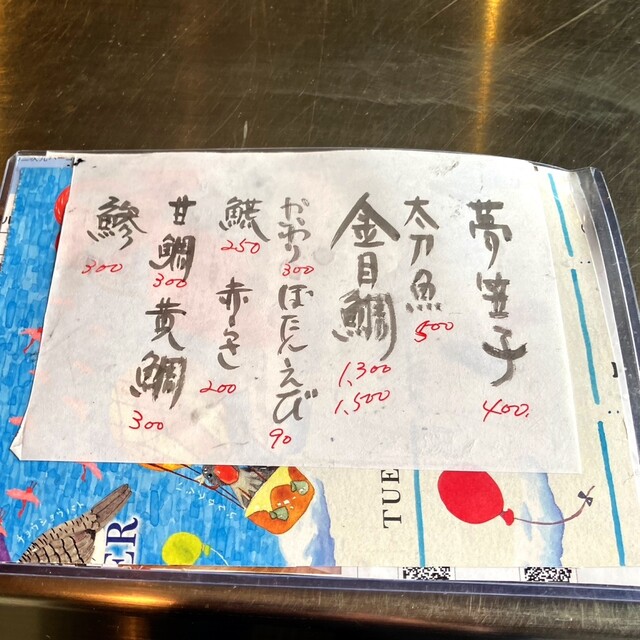 400.
太刀魚
500
金目鯛
1,300
1,500
300
ぼたんえび
90
250
200
甘鯛
300
黄鯛
300
鯵
300
TUE
ER